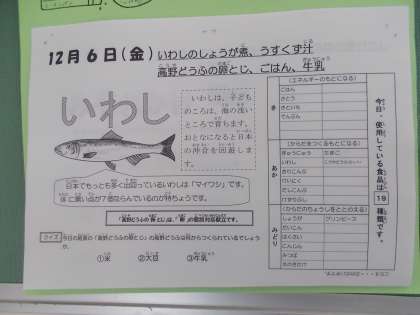 12月6日(金) いわしのしょうが煮、うすくず汁
高野どうふの卵とじ、ごはん、牛乳
いわし
いわしは、子ども
のころは、海の浅い
ところで育ちます。
おとなになると日本
の沖合を回遊しま
す。
日本でもっとも多く出回っているいわしは「マイワシ」です。
体に黒い点が7個ならんでいるのが特ちょうです。
「高野どうふの卵とじ」は、「卵」の個別対応献立です。
クイズ 今日の給食の「高野どうふの卵とじ」の高野どうふは何からつくられているでしょ
うか。
①米 ②大豆 ③牛乳
今日、使用している食品は 19 種類です。
き
(エネルギーのもとになる)
ごはん
さとう
さといも
でんぷん
あか
(からだをつくるもとになる)
ぎゅうにゅう たまご
いわし
とりにく
みどり
(からだのちょうしをととのえる)
しょうが グリンピース
だいこん
はくさい
にんじん
みつば